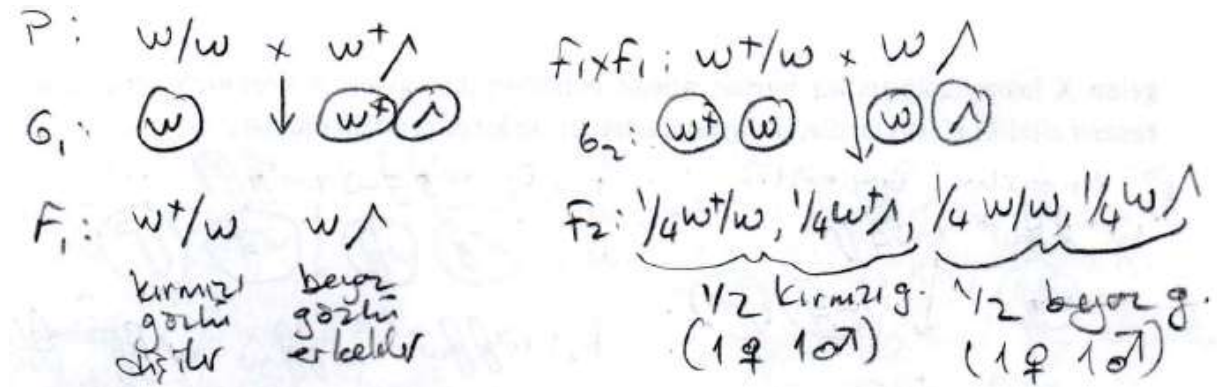 P: w/w x w⁺/\
G₁: w w⁺ /\
F₁: w⁺/w w/\
kırmızı gözlü dişiler
beyaz gözlü erkekler
F₁xF₁: w⁺/w x w/\
G₂: w⁺ w w /\
F₂: 1/4 w⁺/w, 1/4 w⁺/\, 1/4 w/w, 1/4 w/\
1/2 kırmızı g. 1/2 beyaz g.
(1♀ 1♂) (1♀ 1♂)